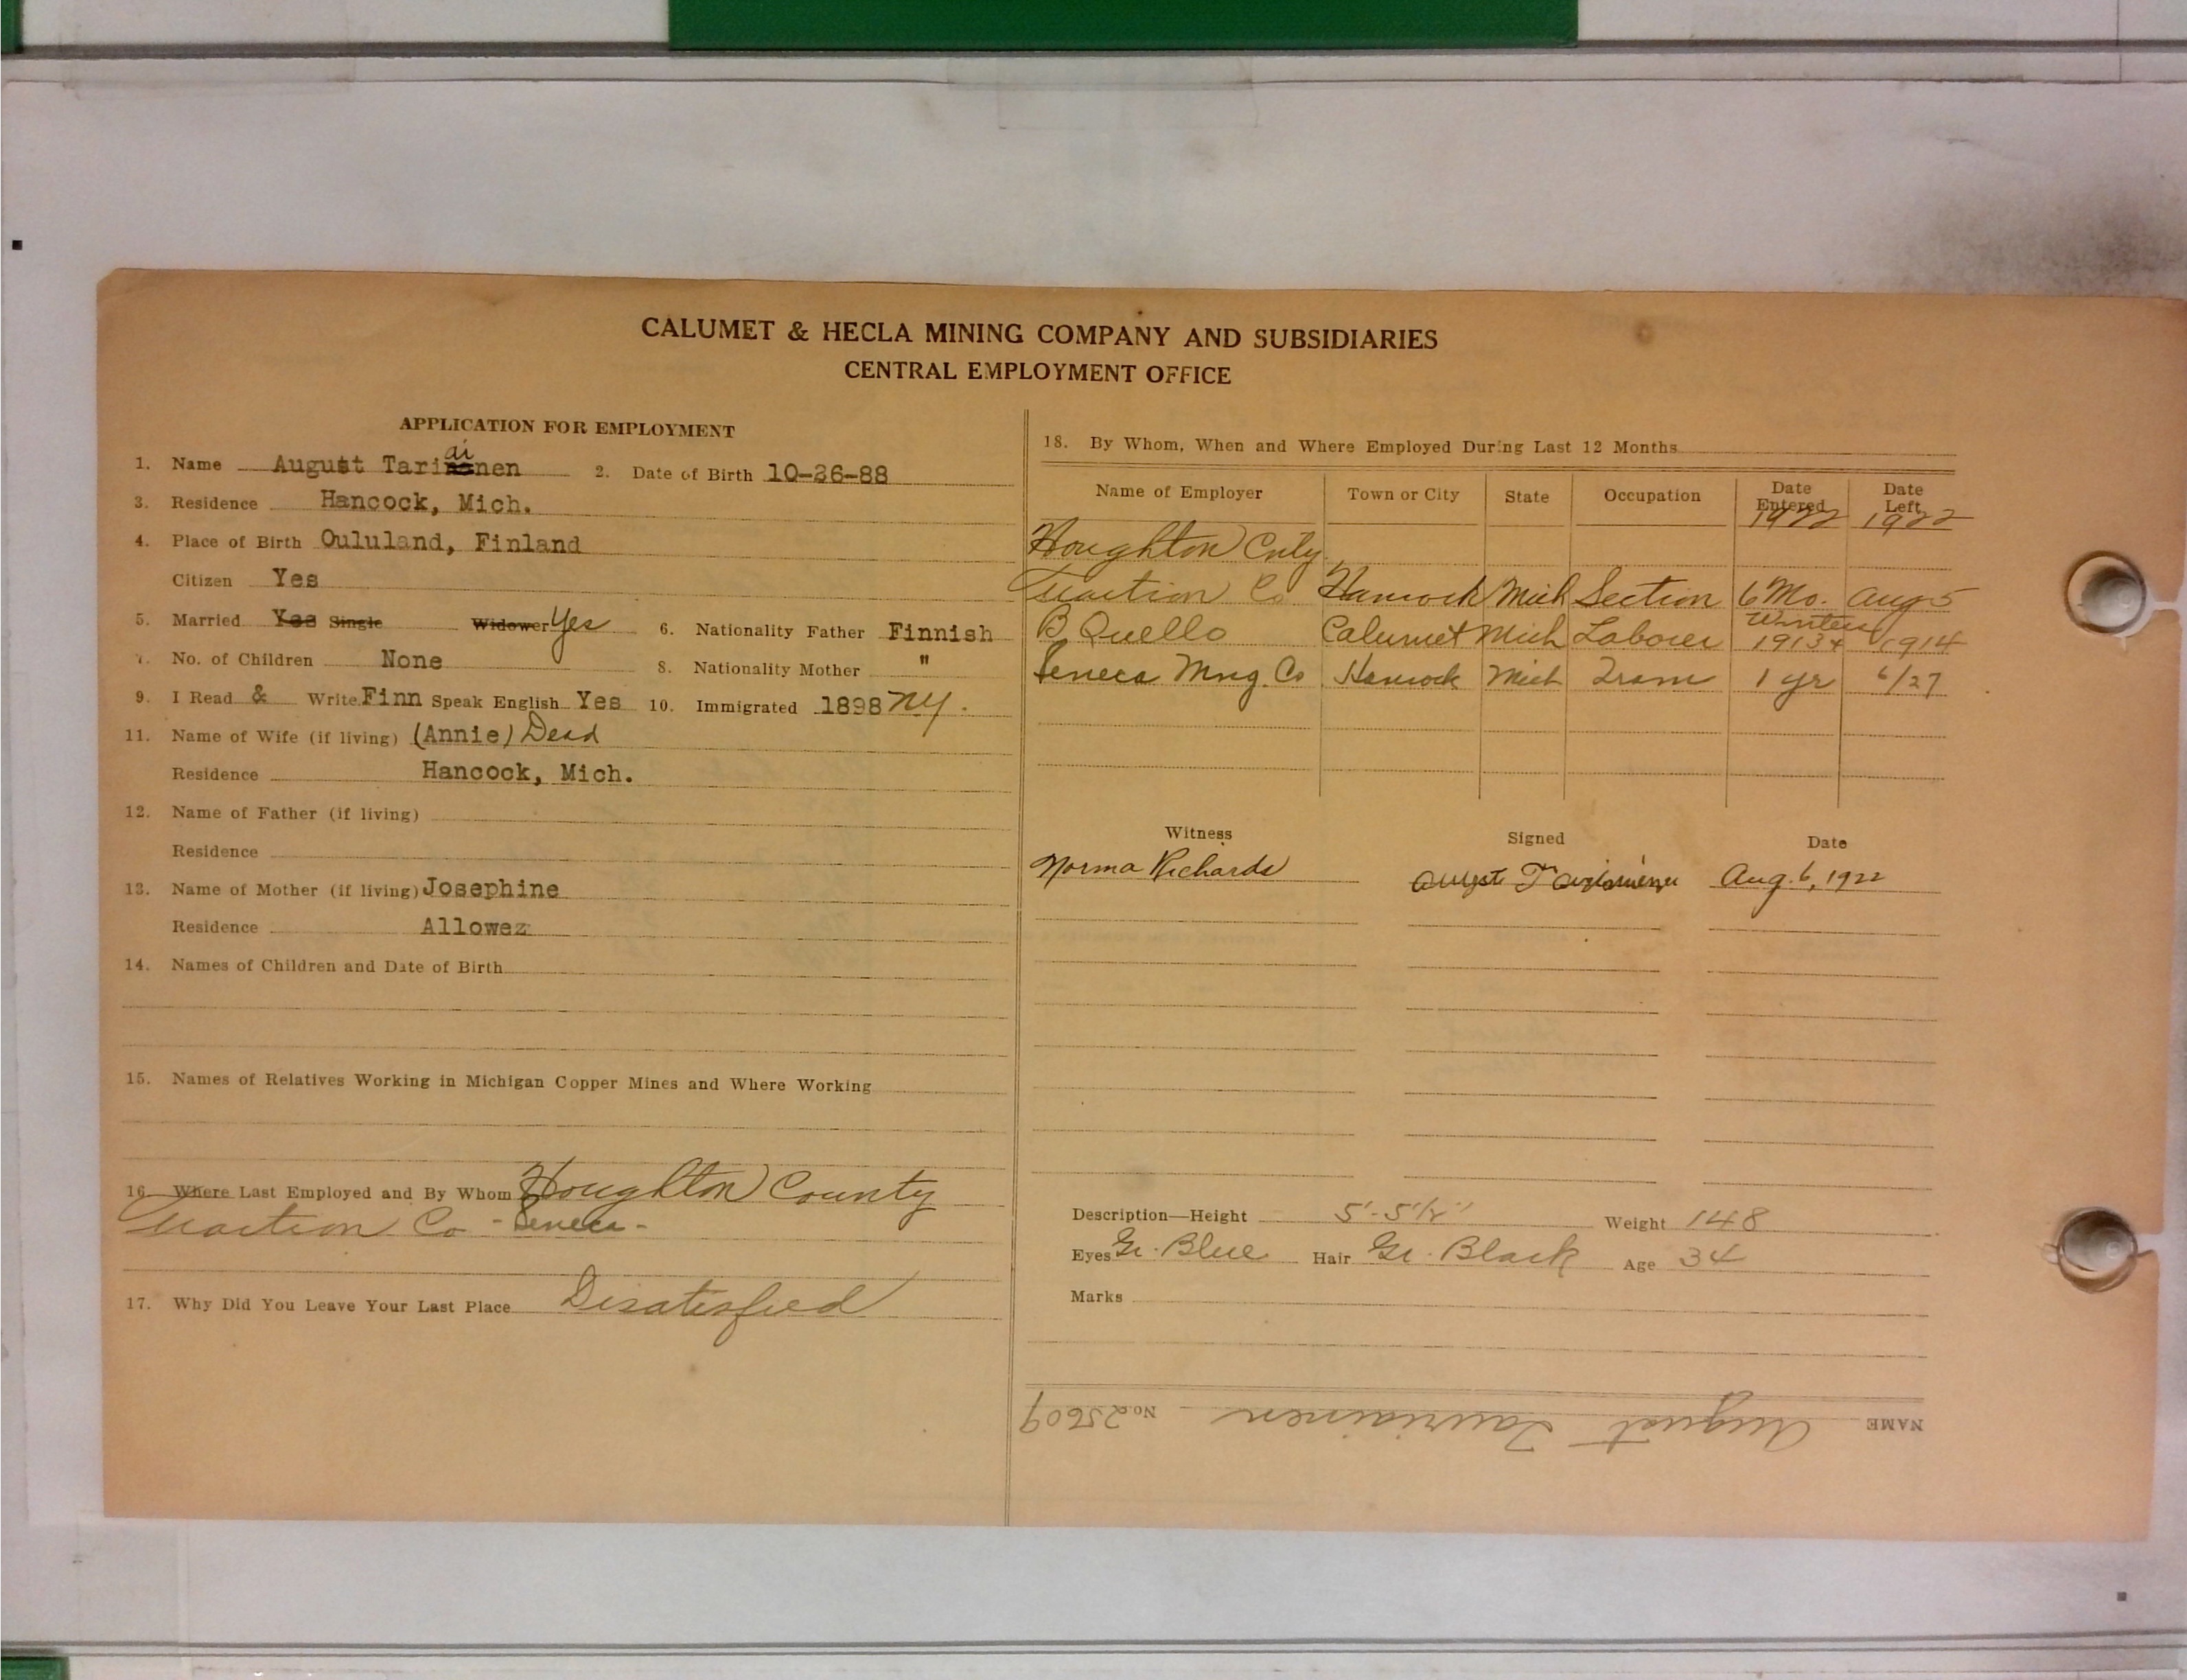 CALUMET & HECLA MINING COMPANY AND SUBSIDIARIES
CENTRAL EMPLOYMENT OFFICE
APPLICATION FOR EMPLOYMENT
ai
1. Name August Tarinanen 2. Date of Birth 10-26-88
3. Residence Hancock, Mich.
4. Place of Birth Oululand, Finland
Citizen Yes
5. Married Yes Single Widower Yes 6. Nationality Father Finnish
7. No. of Children None 8. Nationality Mother "
9. I Read & Write Finn Speak English Yes 10. Immigrated 1898 NY.
11. Name of Wife (if living) (Annie) Dead
Residence Hancock, Mich.
12. Name of Father (if living)
Residence
13. Name of Mother (if living) Josephine
Residence Allowez
14. Names of Children and Date of Birth
15. Names of Relatives Working in Michigan Copper Mines and Where Working
16. Where Last Employed and By Whom Houghton County
Traction Co - Seneca -
17. Why Did You Leave Your Last Place Disatisfied
18. By Whom, When and Where Employed During Last 12 Months
Name of Employer Town or City State Occupation Date Entered Date Left
1922 1922
Houghton Cnty
Traction Co Hancock Mich Section 6 Mo. Aug 5
Winters
B Quello Calumet Mich Laborer 1913+ 1914
Seneca Mng. Co Hancock Mich Tram 1 yr 6/27
Witness Signed Date
Norma Richards August Aug. 6, 1922
Description—Height 5'-5 1/2" Weight 148
Eyes Gr. Blue Hair Gr. Black Age 34
Marks
NAME August Tauriainen No. 25609